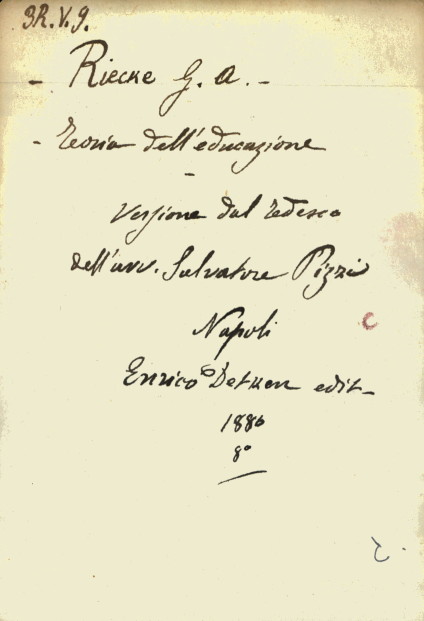 3R.V.9.
- Riecke G. A. -
- Teoria dell'educazione
-
Versione dal tedesco
dell'avv. Salvatore Pizzi
Napoli
Enrico Detken edit-
1886
8°